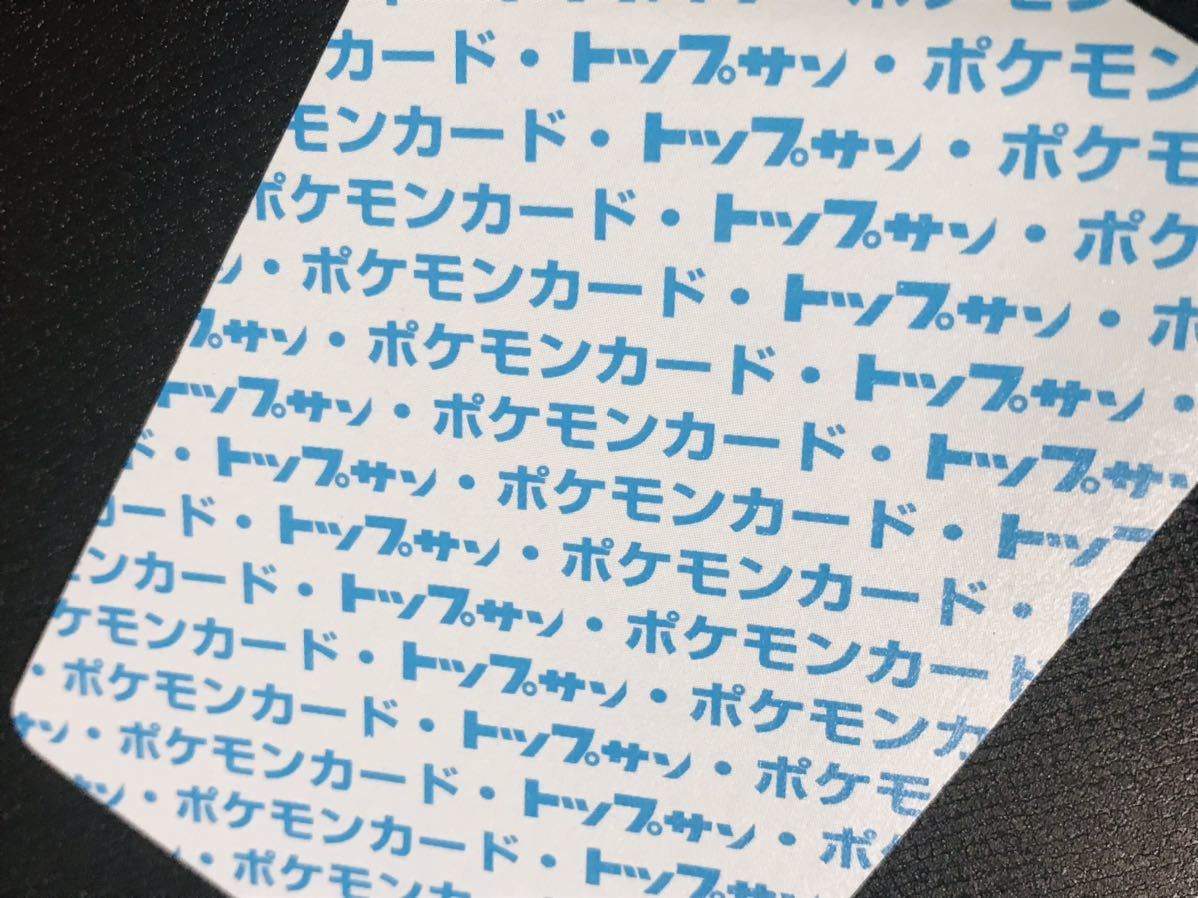 ポケモン
カード・トップサン・ポケモン
モンカード・トップサン・ポケモ
ポケモンカード・トップサン・ポケ
ン・ポケモンカード・トップサン・ポ
プサン・ポケモンカード・トップサン・
トップサン・ポケモンカード・トップサン
ド・トップサン・ポケモンカード・トップ
カード・トップサン・ポケモンカード・ト
モンカード・トップサン・ポケモンカード
ケモンカード・トップサン・ポケモンカ
・ポケモンカード・トップサン・ポケモ
サン・ポケモンカード・トップサン・ポケ
サン・ポケモンカード・トップサン
・ポケモンカ